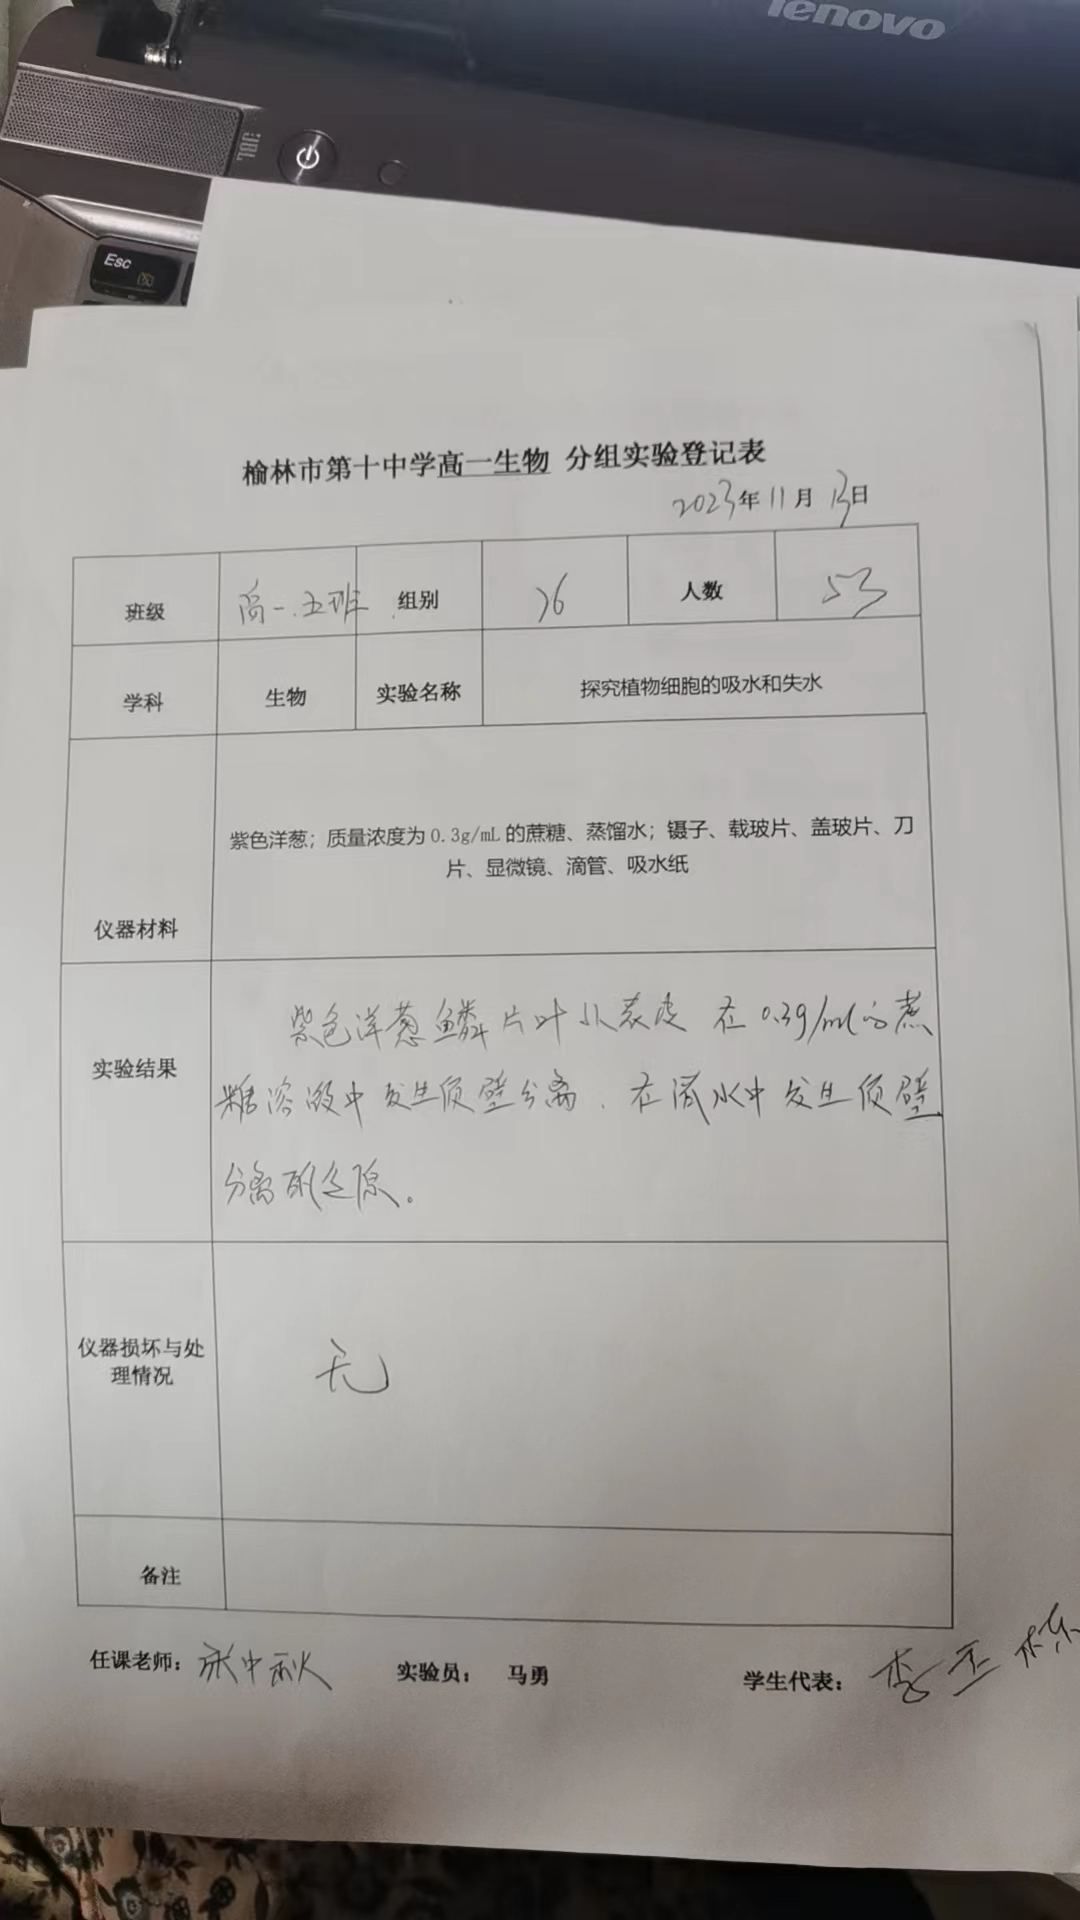 lenovo
JBL
Esc
榆林市第十中学高一生物 分组实验登记表
2023年11月13日
班级 高一.五班 组别 26 人数 53
学科 生物 实验名称 探究植物细胞的吸水和失水
紫色洋葱；质量浓度为 0.3g/mL 的蔗糖、蒸馏水；镊子、载玻片、盖玻片、刀
片、显微镜、滴管、吸水纸
仪器材料
紫色洋葱鳞片叶外表皮 在0.3g/ml的蔗
实验结果
糖溶液中发生质壁分离．在清水中发生质壁
分离的复原。
仪器损坏与处
理情况
无
备注
任课老师：张中秋 实验员： 马勇 学生代表：李玉栋